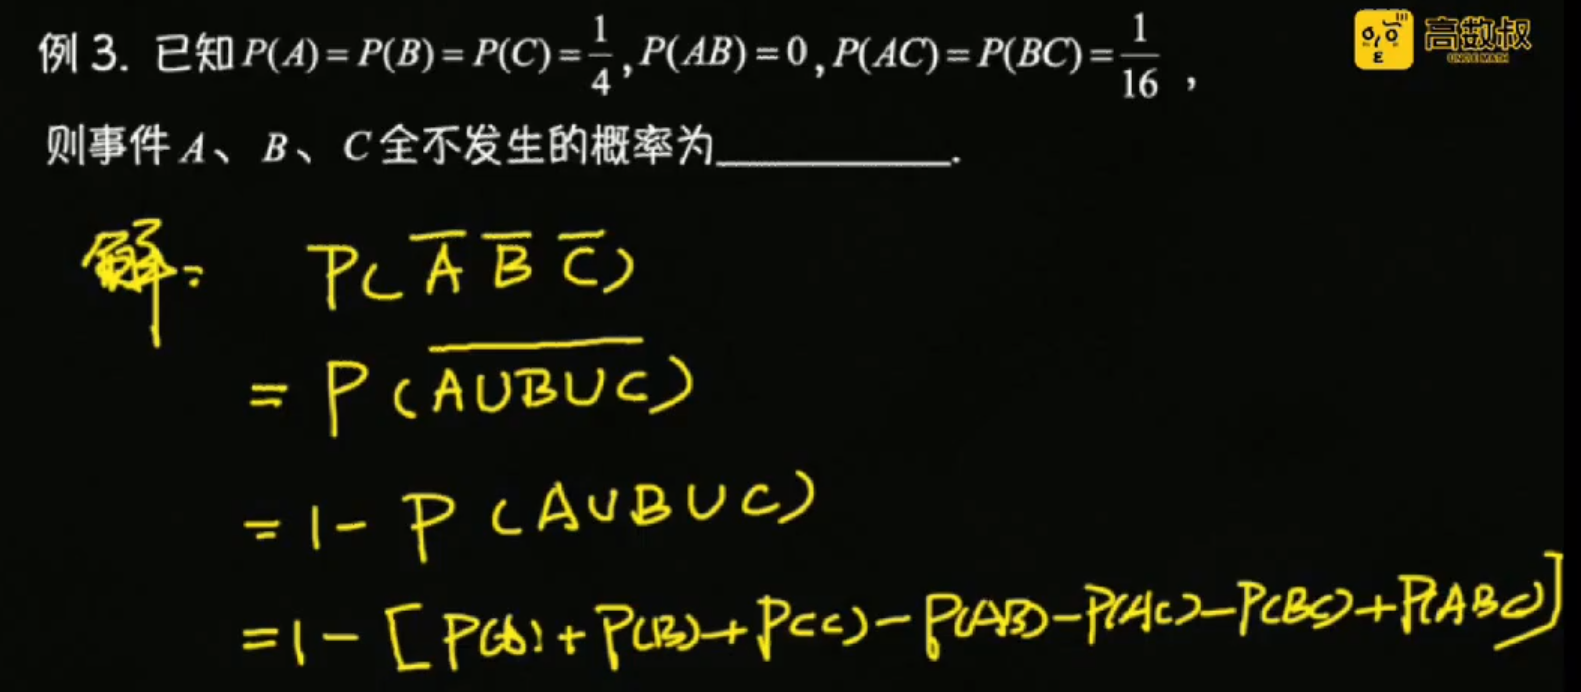 例 3. 已知 P(A) = P(B) = P(C) = 1/4 , P(AB) = 0 , P(AC) = P(BC) = 1/16 ,
高数叔
UNCLE MATH
则事件 A、B、C 全不发生的概率为__________.
解: P(A̅ B̅ C̅)
= P(\overline{A∪B∪C})
= 1 - P(A∪B∪C)
= 1 - [P(A) + P(B) + P(C) - P(AB) - P(AC) - P(BC) + P(ABC)]